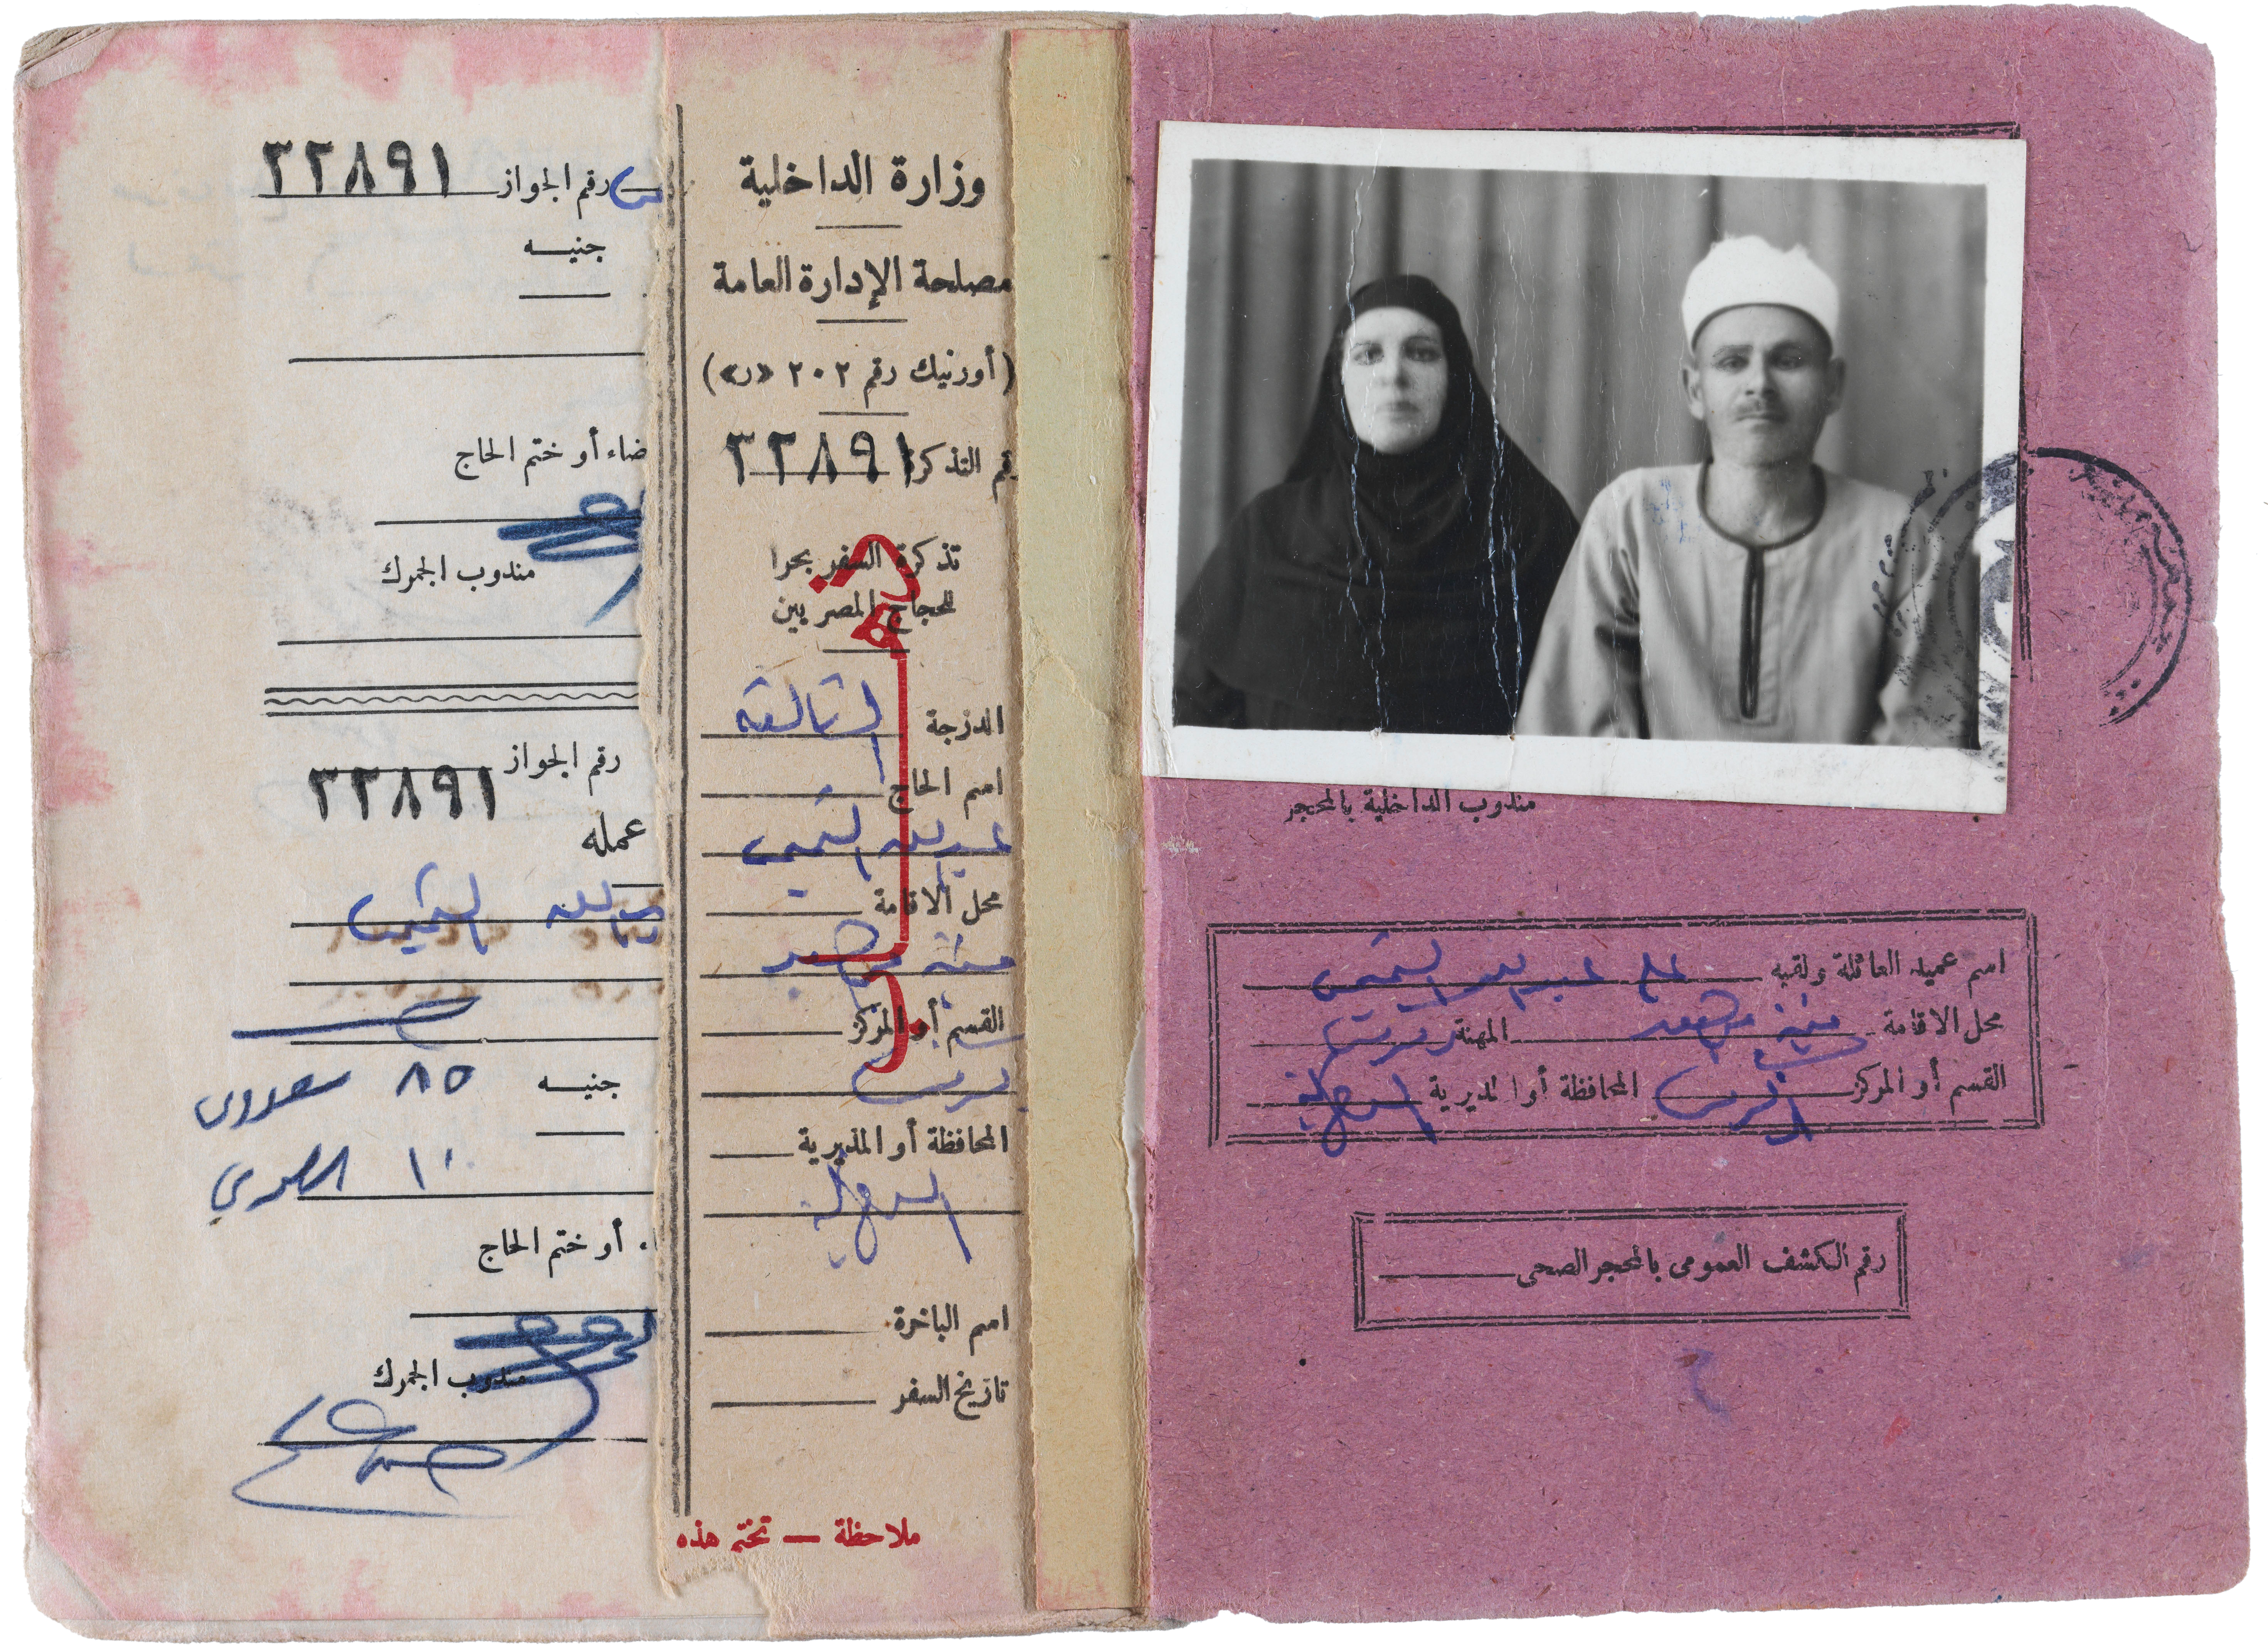 مندوب الداخلية بالمحجر
اسم عميد العائلة ولقبه على عبد الله
محل الاقامة منية المهنة
القسم أو المركز المحافظة أو المديرية الدقهلية
رقم الكشف العمومى بالمحجر الصحى
وزارة الداخلية
مصلحة الإدارة العامة
(أورنيك رقم ٢٠٢ «ر»)
قم التذكرة ٣٢٨٩١
تذكرة السفر بحرا
للحجاج المصريين
الدرجة الثالثة
اسم الحاج
عبد الله
محل الاقامة
منية
القسم أو المركز
المحافظة أو المديرية
الدقهلية
اسم الباخرة
تاريخ السفر
ملاحظة — تختم هذه
رقم الجواز ٣٢٨٩١
جنيه
ضاء أو ختم الحاج
مندوب الجمرك
رقم الجواز
٣٢٨٩١
عمله
جنيه ٨٥ سعودى
١٠ مصرى
أو ختم الحاج
مندوب الجمرك